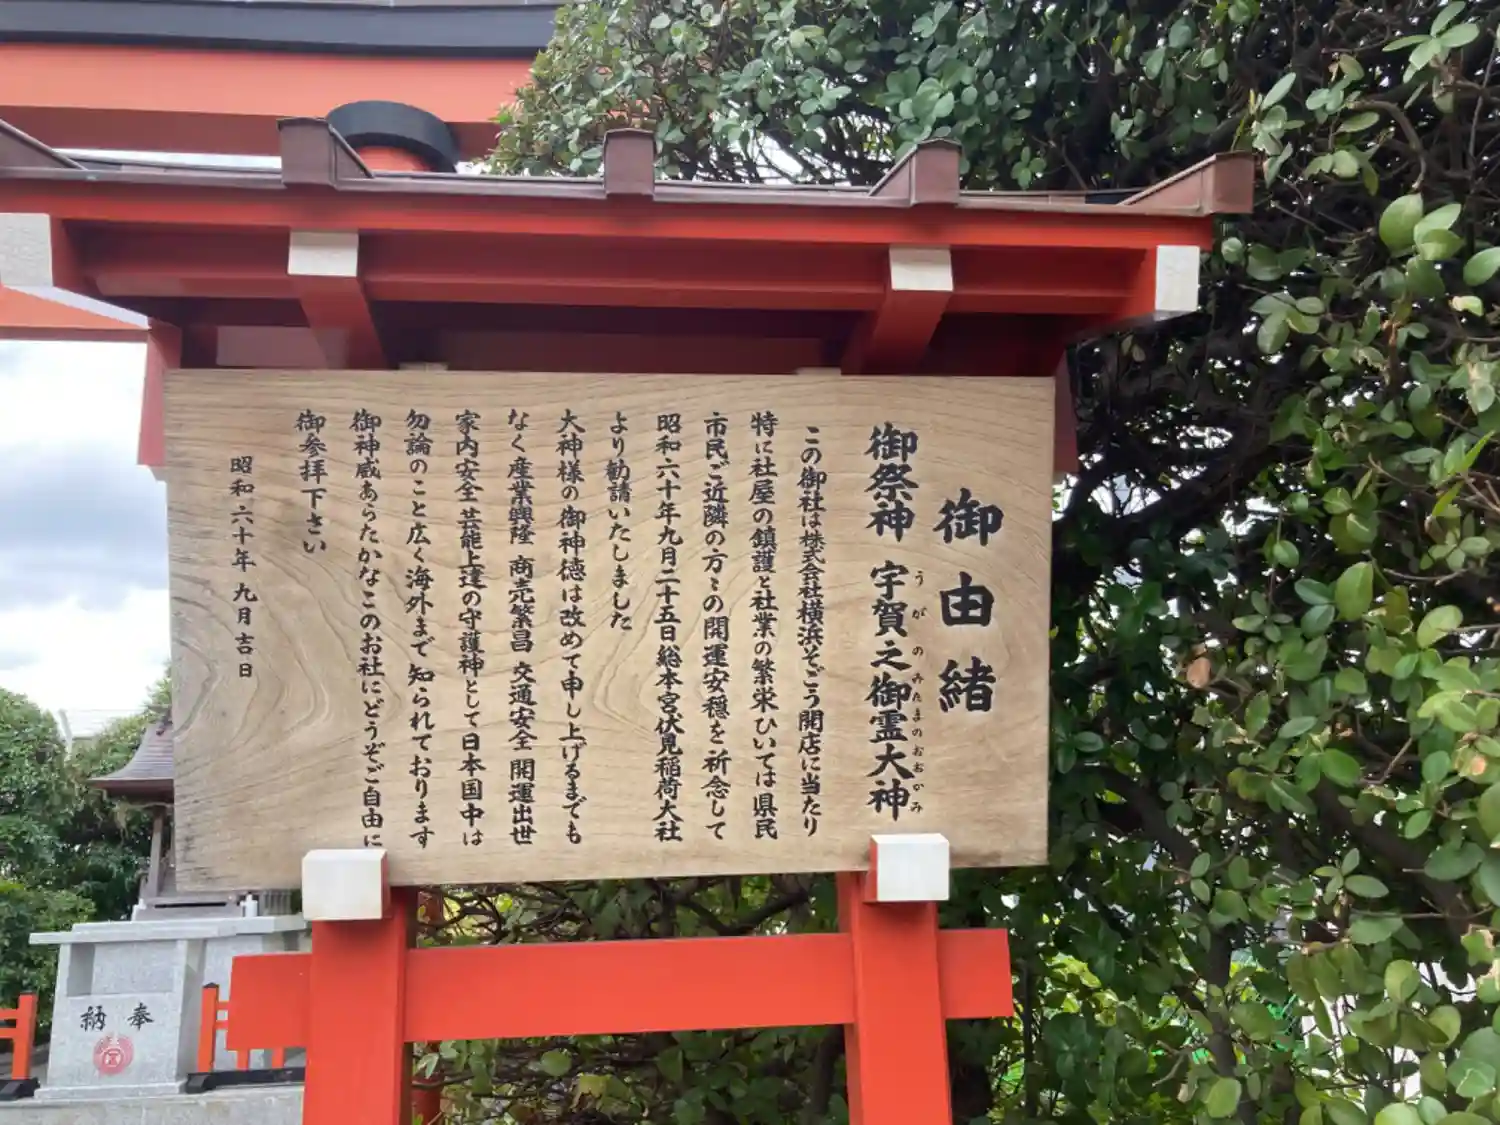 御由緒
御祭神 宇賀之御霊大神
うがのみたまのおおかみ
この御社は株式会社横浜そごう開店に当たり
特に社屋の鎮護と社業の繁栄ひいては県民
市民ご近隣の方々の開運安穏を祈念して
昭和六十年九月二十五日総本宮伏見稲荷大社
より勧請いたしました
大神様の御神徳は改めて申し上げるまでも
なく産業興隆 商売繁昌 交通安全 開運出世
家内安全 芸能上達の守護神として日本国中は
勿論のこと広く海外まで知られております
御神威あらたかなこのお社にどうぞご自由に
御参拝下さい
昭和六十年九月吉日
奉納